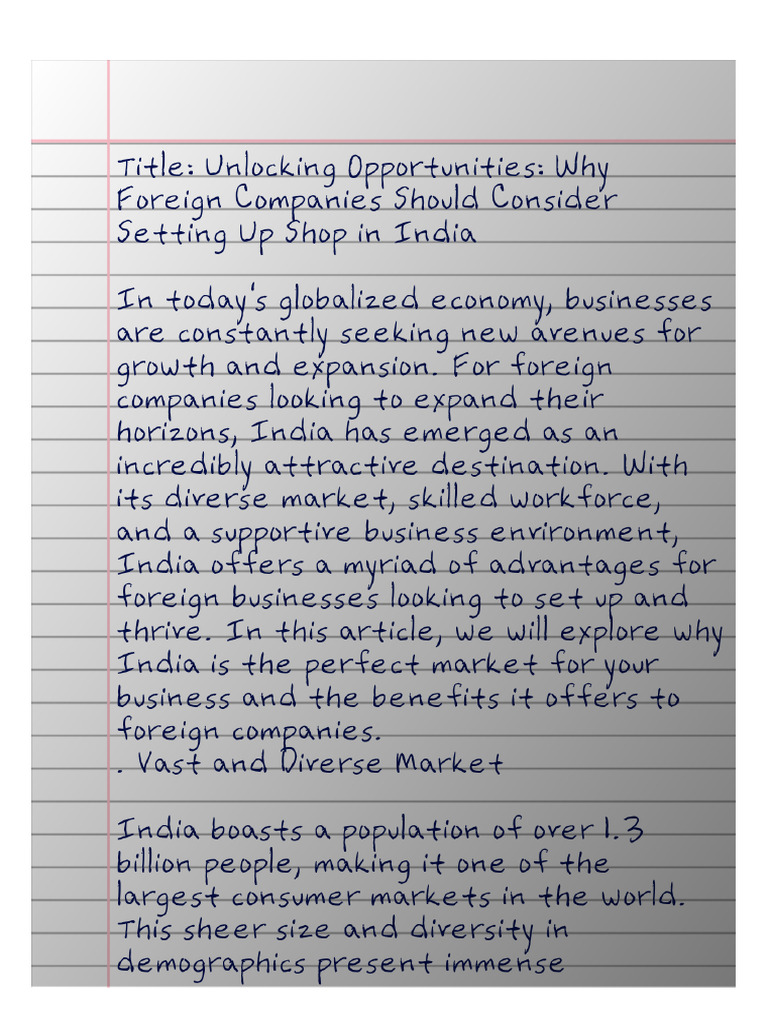 Title: Unlocking Opportunities: Why
Foreign Companies Should Consider
Setting Up Shop in India
In today's globalized economy, businesses
are constantly seeking new avenues for
growth and expansion. For foreign
companies looking to expand their
horizons, India has emerged as an
incredibly attractive destination. With
its diverse market, skilled workforce,
and a supportive business environment,
India offers a myriad of advantages for
foreign businesses looking to set up and
thrive. In this article, we will explore why
India is the perfect market for your
business and the benefits it offers to
foreign companies.
. Vast and Diverse Market
India boasts a population of over 1.3
billion people, making it one of the
largest consumer markets in the world.
This sheer size and diversity in
demographics present immense